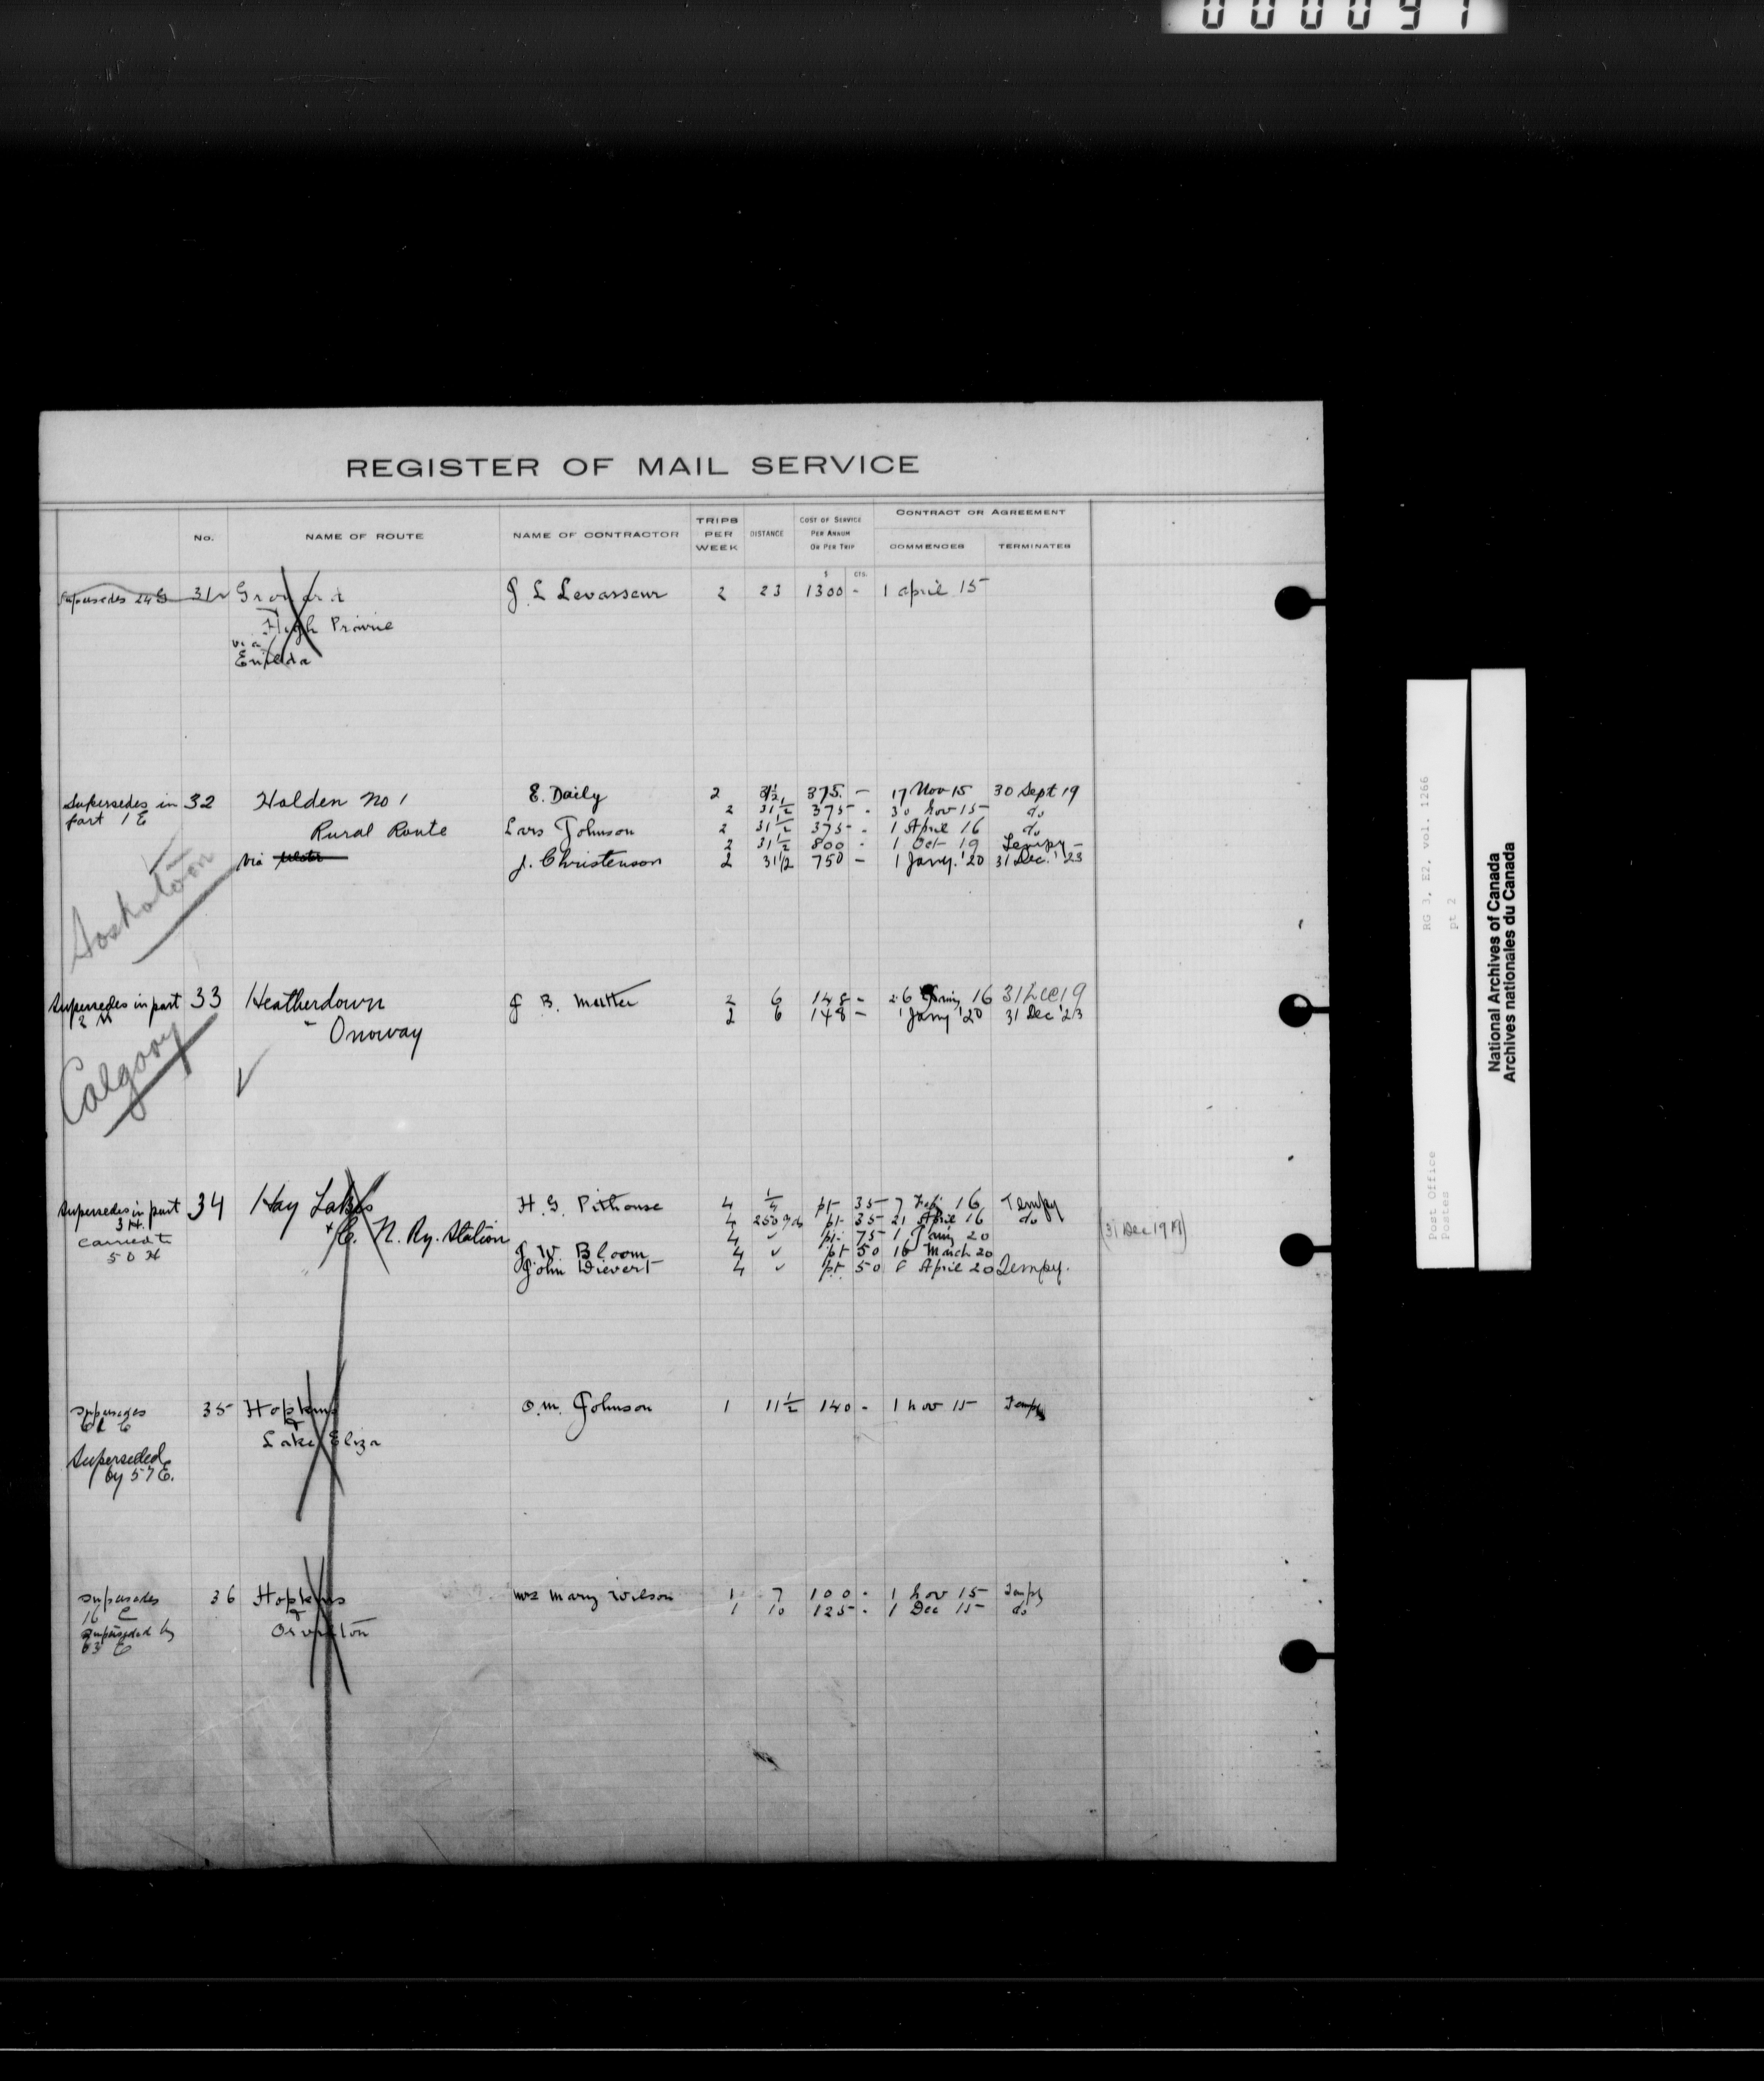 000091
REGISTER OF MAIL SERVICE
No. NAME OF ROUTE NAME OF CONTRACTOR TRIPS PER WEEK DISTANCE COST OF SERVICE PER ANNUM OR PER TRIP $ CTS. CONTRACT OR AGREEMENT COMMENCES TERMINATES
Supersedes 31 Grouard J L Levasseur 2 23 1300 - 1 april 15
High Prairie
via
Enilda
Supersedes in 32 Holden No 1 E. Daily 2 31½ 375. - 17 Nov 15 30 Sept 19
part 1 E 2 31½ 375 - 30 Nov 15 do
Rural Route Lars Johnson 2 31½ 375 - 1 April 16 do
2 31½ 800 - 1 Oct 19 Tempy -
via J. Christenson 2 31½ 750 - 1 Jany. '20 31 Dec. '23
Saskatoon
Supersedes in part 33 Heatherdown J B. 2 6 148 - 26 Jany 16 31 Dec 19
2 6 148 - 1 Jany '20 31 Dec '23
- Onoway
Calgary
Supersedes in part 34 Hay Lakes H. G. Pithouse 4 ¼ pt 35 7 Feb 16 Tempy
3 H. 4 250 yds pt 35 21 April 16 do
carried to + C. N. Ry. Station 4 ✓ pt 75 1 Jany 20 (31 Dec 1919)
50 H J. W. Bloom 4 ✓ pt 50 16 March 20
John Dievert 4 ✓ pt 50 April 20 Tempy.
Supersedes 35 Hopkins O. M. Johnson 1 11½ 140 - 1 Nov 15 Tempy
&
Lake Eliza
Superseded
by 57 E.
Supersedes 36 Hopkins Mrs Mary Wilson 1 7 100 - 1 Nov 15 Tempy
16 E & 1 10 125 - 1 Dec 15 do
Superseded by Orvilton
63 E
RG 3, E2, vol. 1266
pt 2
Post Office
Postes
National Archives of Canada
Archives nationales du Canada